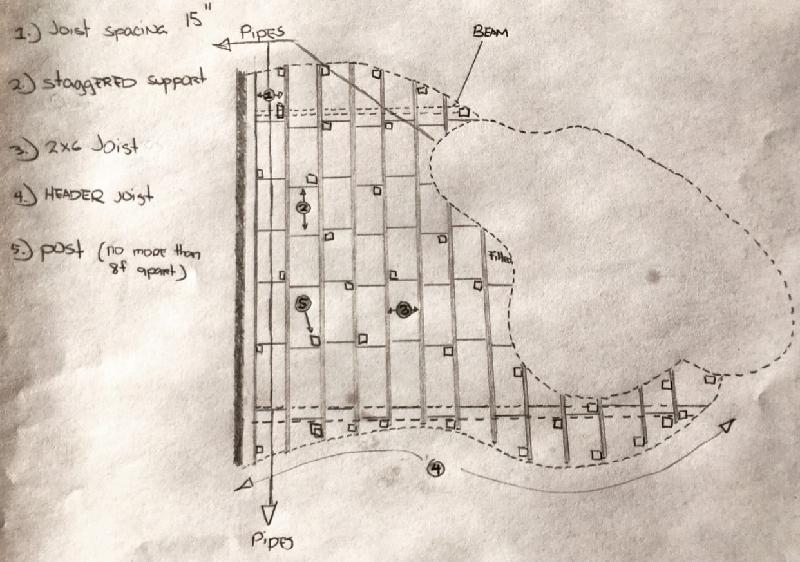 1.) Joist spacing 15"
2.) staggERED support
3.) 2x6 Joist
4.) HEADER Joist
5.) post (no more than
8f apart)
Pipes
BEAM
1
2
Filled
5
3
4
Pipes